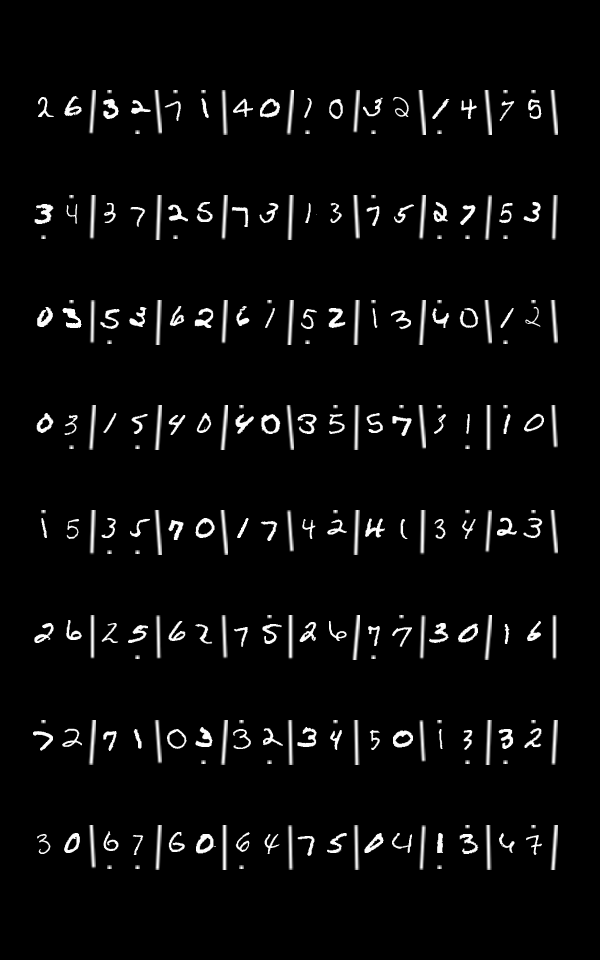 2 6 | 3 2 | 7 1 | 4 0 | 1 0 | 3 2 | 1 4 | 7 5 |
3 4 | 3 7 | 2 5 | 7 3 | 1 3 | 7 5 | 2 7 | 5 3 |
0 3 | 5 3 | 6 2 | 6 1 | 5 2 | 1 3 | 4 0 | 1 2 |
0 3 | 1 5 | 4 0 | 4 0 | 3 5 | 5 7 | 3 1 | 1 0 |
1 5 | 3 5 | 7 0 | 1 7 | 4 2 | 4 1 | 3 4 | 2 3 |
2 6 | 2 5 | 6 2 | 7 5 | 2 6 | 7 7 | 3 0 | 1 6 |
7 2 | 7 1 | 0 3 | 3 2 | 3 4 | 5 0 | 1 3 | 3 2 |
3 0 | 6 7 | 6 0 | 6 4 | 7 5 | 0 4 | 1 3 | 4 7 |